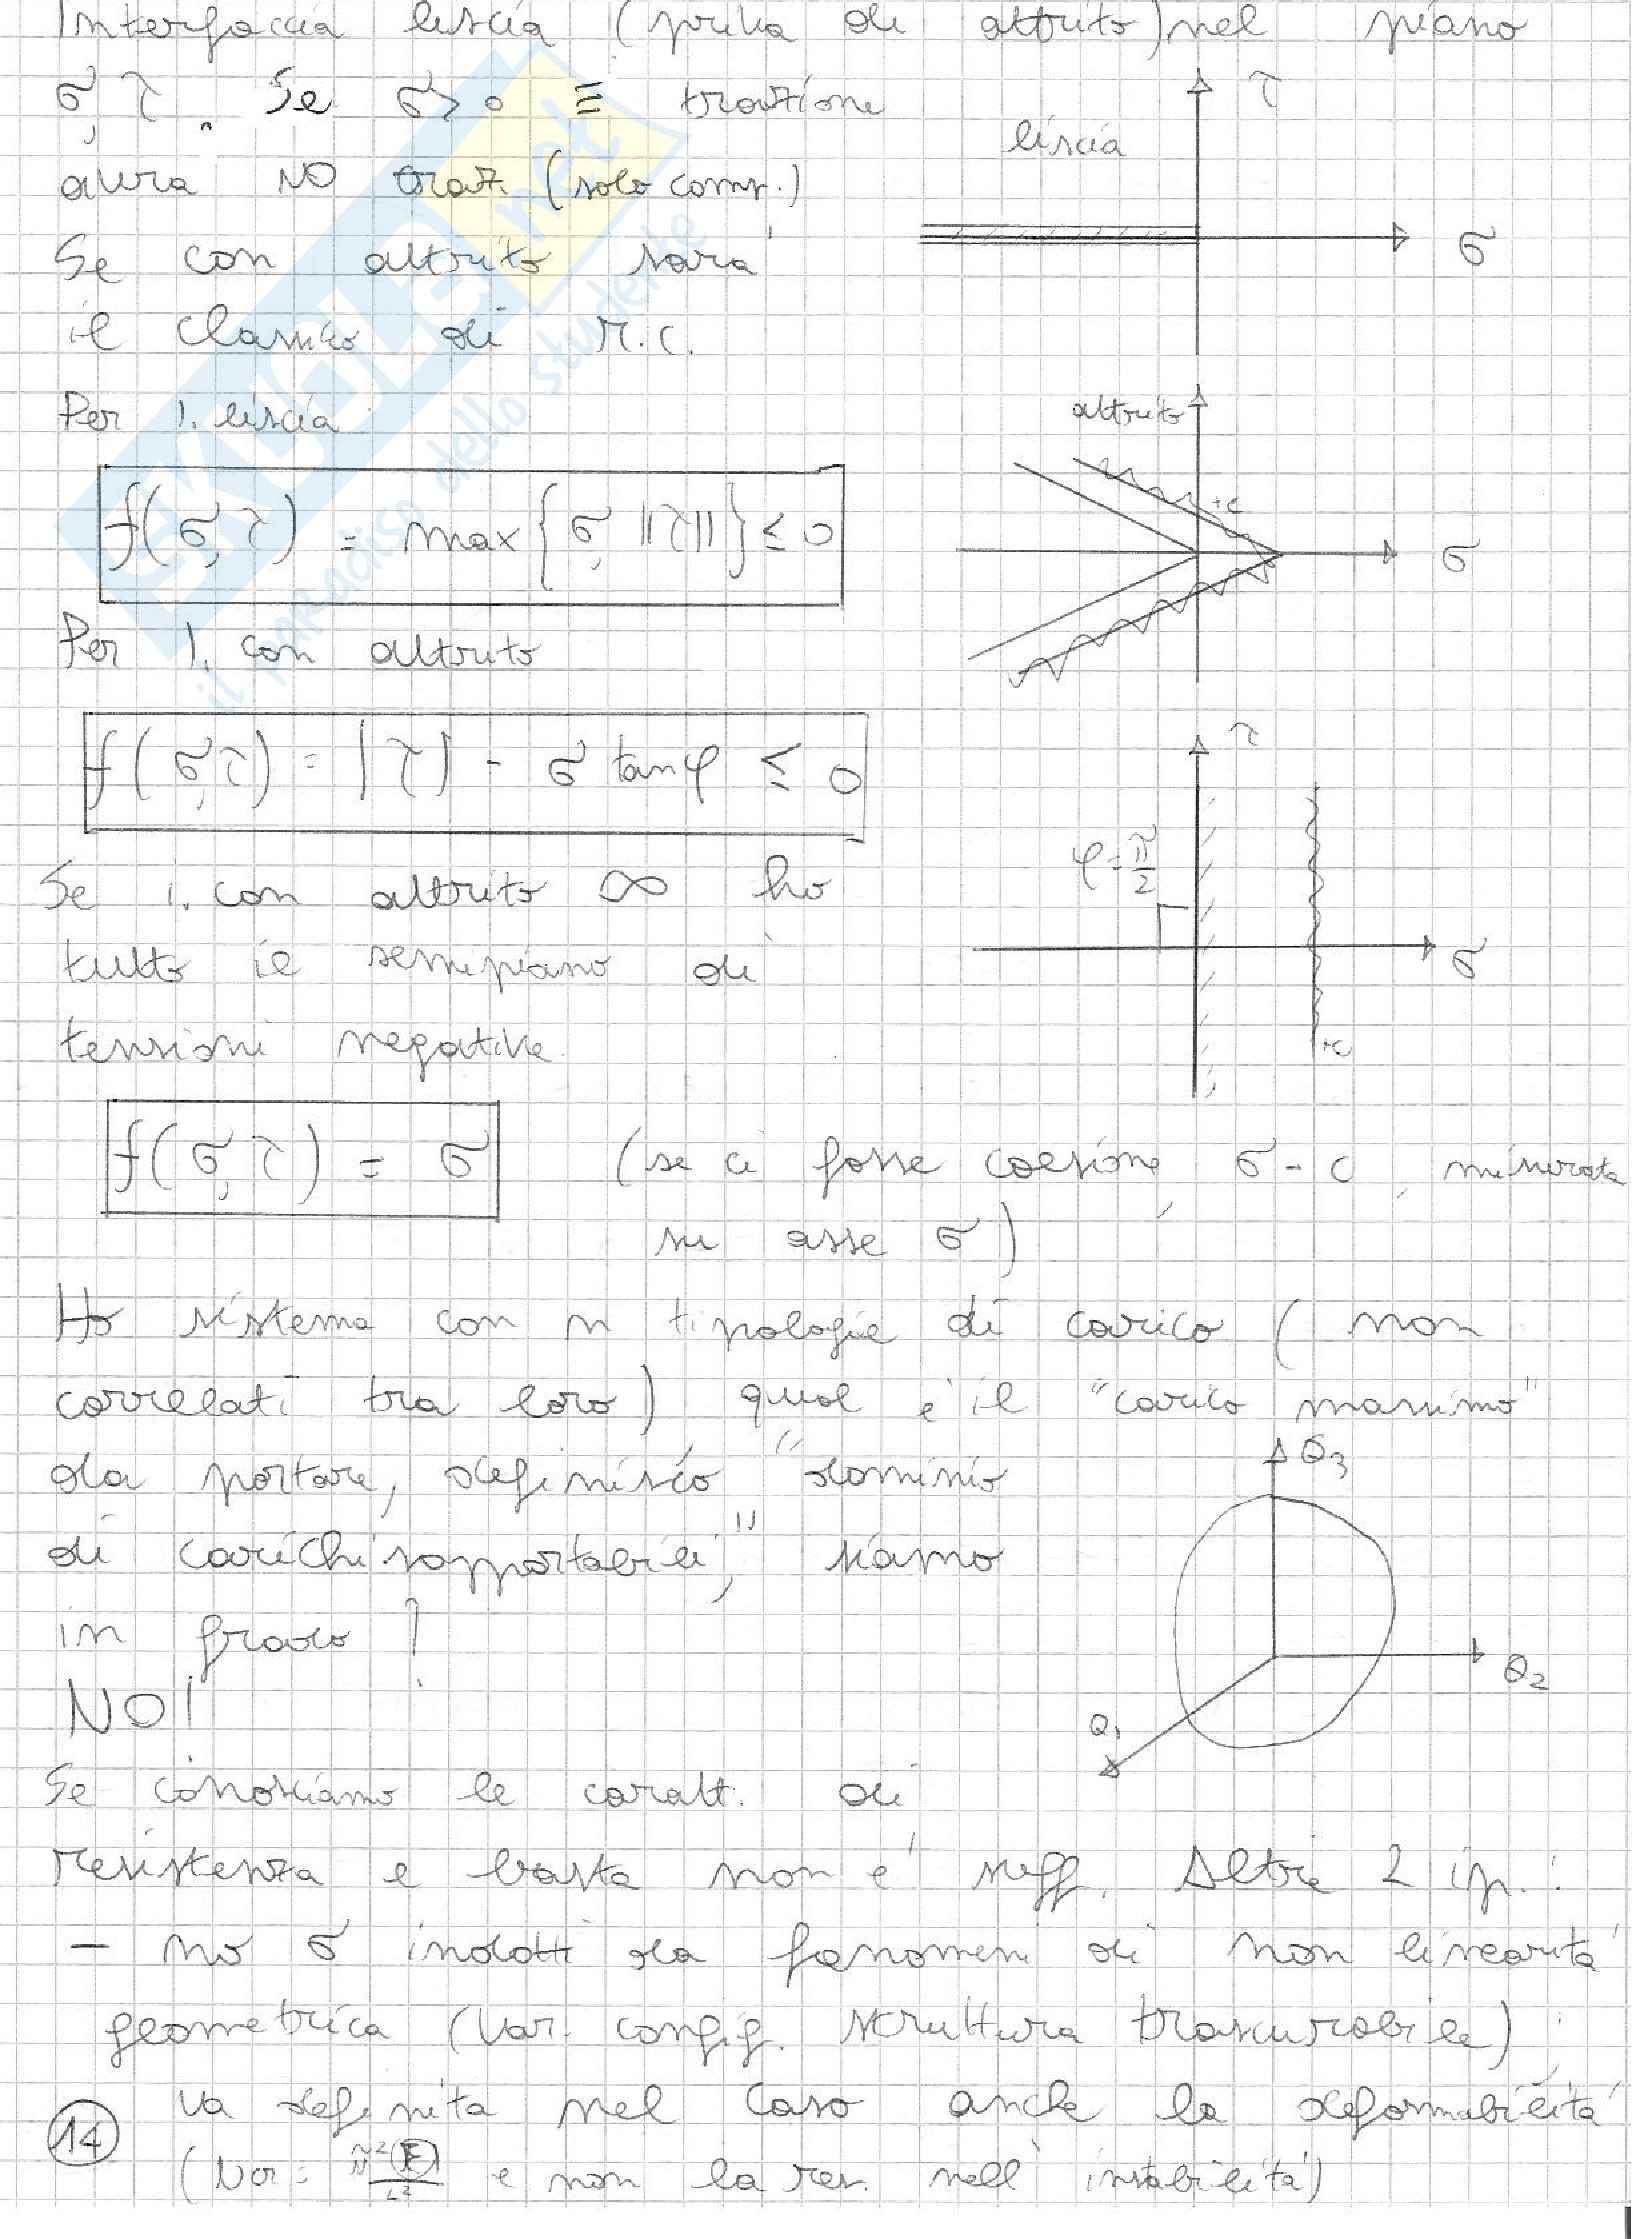 Interfaccia liscia (priva di attrito) nel piano
σ, τ. Se σ>0 ≡ trazione
avrà NO traz. (solo comp.)
Se con attrito sarà
il classico di r.c.
τ
liscia
σ
Per i. liscia
f(σ,τ) = max{σ, ||τ||} ≤ 0
attrito
+c
σ
Per i. con attrito
f(σ,τ) = |τ| - σ tanφ ≤ 0
Se i. con attrito ∞ ho
tutto il semipiano di
tensioni negative.
τ
φ=π/2
σ
+c
f(σ,τ) = σ (se ci fosse coesione, σ-c, misurata
su asse σ)
Ho sistema con n tipologie di carico (non
correlati tra loro) qual è il "carico massimo"
da portare, definisco "dominio
di carichi sopportabili", siamo
in grado?
NO!
Q3
Q2
Q1
Se conosciamo le caratt. di
resistenza e basta non è suff. Altre 2 ip.:
- no σ indotti da fenomeni di non linearità
geometrica (var. config. struttura trascurabile)
va definita nel caso anche la deformabilità
(Ncr = π²EI/L² e non la res. nell'instabilità)
14
SKUOLA.net
il paradiso dello studente